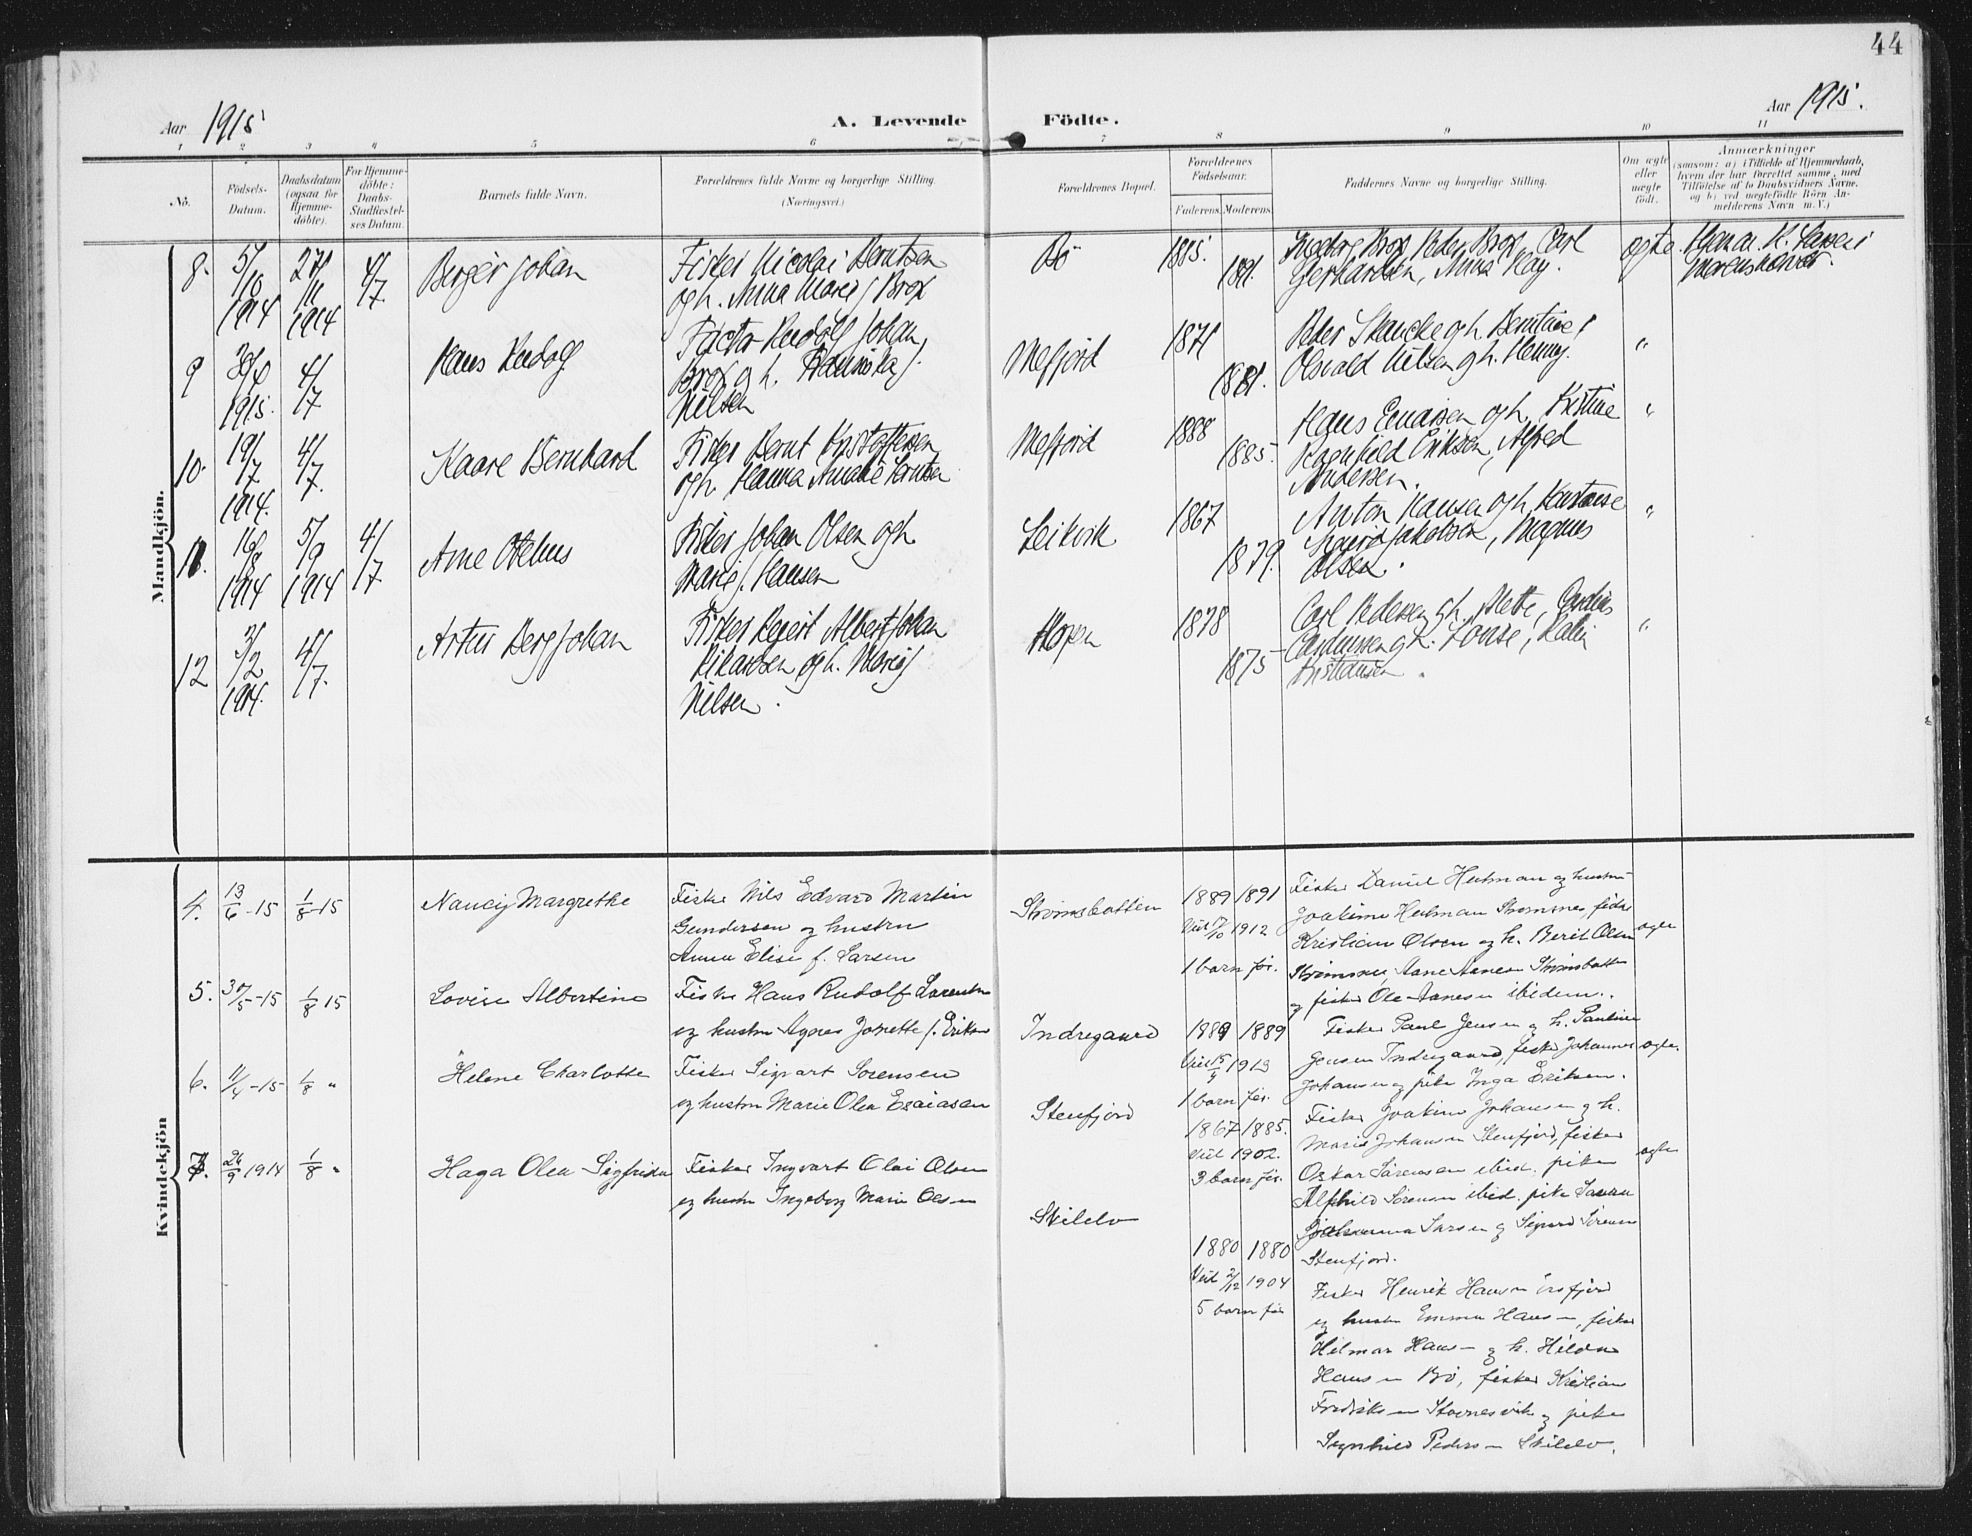 44
Aar 1915 A. Levende Födte. Aar 1915.
1 2 3 4 5 6 7 8 9 10 11
No.
Födsels-Datum.
Daabsdatum (ogsaa for Hjemme-döbte).
For Hjemme-döbte: Daabs-Stadfæstel-ses Datum.
Barnets fulde Navn.
Forældrenes fulde Navne og borgerlige Stilling.
(Næringsvei.)
Forældrenes Bopæl.
Forældrenes Födselsaar.
Faderens. Moderens.
Faddernes Navne og borgerlige Stilling.
Om ægte eller uægte födt.
Anmærkninger
(saasom: a) i Tilfælde af Hjemmedaab, hvem der har forrettet samme, med Tilföielse af to Daabsvidners Navne, og b) ved uægtefödte Börn An-melderens Navn m. V.)
Mandkjön.
8. 5/10 1914 27/11 1914 4/7 Berger Johan
Fisker Nicolai Berntsen
og h. Anna Marie f. Brox
Bö 1885.
Ingeborg Brox, Peder Brox, Carl
Gerhardsen, Anna Kay.
ægte
9 30/4 1915. 4/7 Hans Rudolf
Rudolf Johan
Brox og h.
Nilsen
Mefjord 1871 1881.
Peder Skancke og h. Berntine,
Osvald Nilsen og h. Henny.
"
10. 19/7 1914. 4/7. Kaare Bernhard
Fisker Bernt Kristoffersen
og h. Hanna Amalie Berntsen
Mefjord 1888 1885.
Hans Enoksen og h. Kristine
Ragnhild Eriksen, Alfred
Andersen.
"
11. 16/8 1914 5/9 1914 4/7 Arne Otelius
Fisker Johan Olsen og h.
Marie f. Hansen
Leikvik 1867 1879.
Anton Hansen og h. Konstanse
Jakobsen, Magnus
Olsen.
"
12 3/2 1914. 4/7. Artur Berg Johan
Fisker Albert Johan
Rikardsen og h. Marie f.
Nilsen.
Hopen 1878 1875
Carl Pedersen og h. Mette,
og h. Lovise,
Kristensen.
"
Kvindekjön
4. 13/6-15 1/8-15 Nancy Margrethe
Fisker Nils Edvard Martin
Gundersen og hustru
Anna Elise f. Larsen
Strömsbotten 1889 1891
Viet /10 1912
1 barn för.
Fisker Daniel Heitman og hustru
Joakime Heitman Strömsnes, fisker
Kristian Olsen og h. Berit Olsen
Strömsnes, Aane Aanesen Strömsbotten
og fisker Ole Aanesen ibidem.
ægte
5. 30/5-15 1/8 15 Lovise Albertine
Fisker Hans Rudolf Larentsen
og hustru Agnes Jonette f. Eriksen
Indregaard 1889 1889
Viet 15/9 1913
1 barn för.
Fisker Paul Jensen og h. Pauline
Jensen Indregaard, fisker Johannes
Johansen og pike Inga Eriksen.
ægte.
6. 11/4-15 1/8 " Helene Charlotte
Fisker Sigvart Sörensen
og hustru Marie Olea Esaiasen
Stenfjord 1867 1885.
Viet 1902.
3 barn för.
Fisker Joakim Johansen og h.
Marie Johansen Stenfjord, fisker
Oskar Sörensen ibid. pike
Alfhild Sörensen ibid. pike
Johanna Larsen og Sigurd Sörensen
Stenfjord.
ægte
7. 26/9 1914 1/8 " Haga Olea Sigfrida
Fisker Ingvart Olai Olsen
og hustru Ingeborg Marie Olsen
Skilelv
1880 1880
Viet 2/12 1904
5 barn för
Fisker Henrik Hansen Örsfjord
og hustru Emma Hansen, fisker
Hilmar Hansen og h. Hilda
Hansen Bö, fisker Kristian
Fredriksen Stovnesvik og pike
Signhild Pedersen Skilelv.